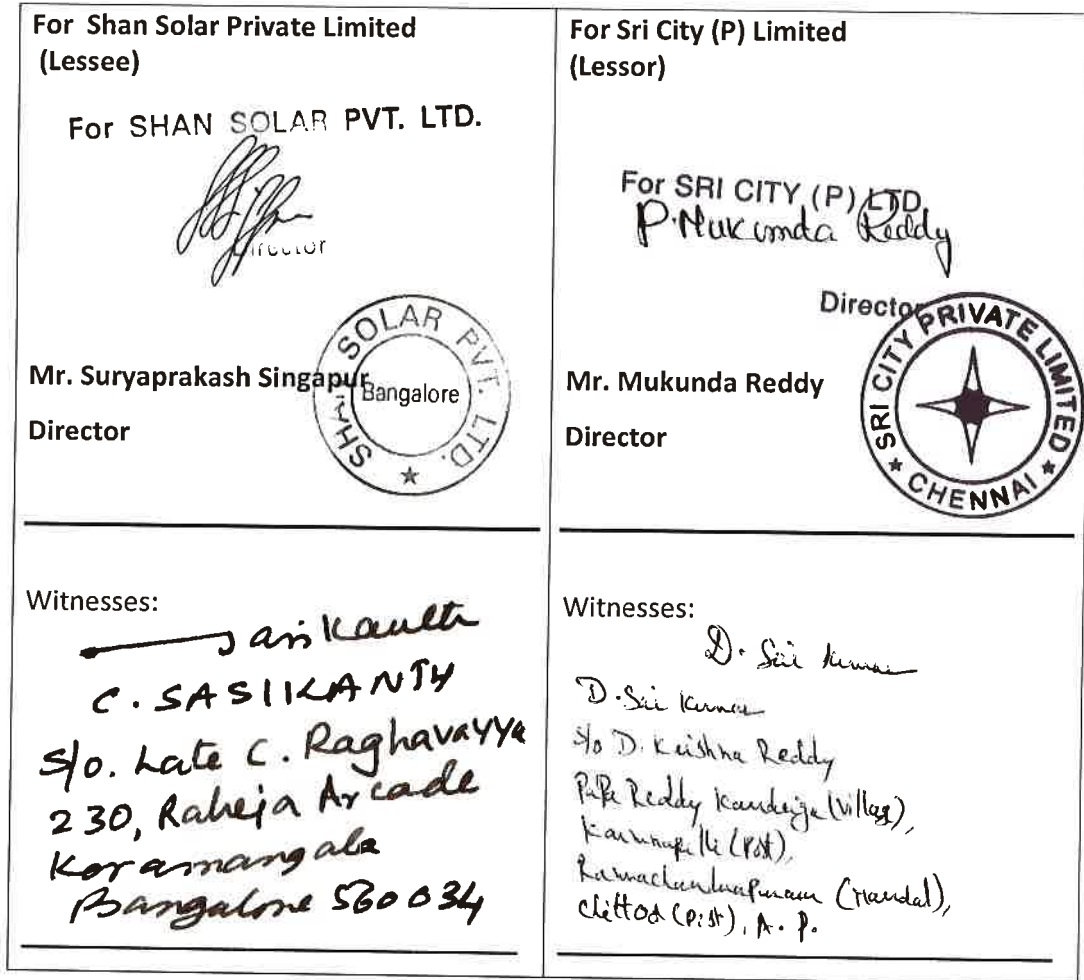 For Shan Solar Private Limited
(Lessee)
For SHAN SOLAR PVT. LTD.
Director
SHAN SOLAR PVT. LTD. ★
Bangalore
Mr. Suryaprakash Singapur
Director
Witnesses:
C. SASIIKANTH
S/o. Late C. Raghavayya
230, Raheja Arcade
Koramangala
Bangalore 560034
For Sri City (P) Limited
(Lessor)
For SRI CITY (P) LTD.
P. Mukunda Reddy
Director
SRI CITY PRIVATE LIMITED
★ CHENNAI ★
Mr. Mukunda Reddy
Director
Witnesses:
D. Sri Kumar
D. Sri Kumar
S/o D. Krishna Reddy
Reddy Kandriga (Village),
(Post),
Ramachandrapuram (Mandal),
Chittoor (Dist), A. P.